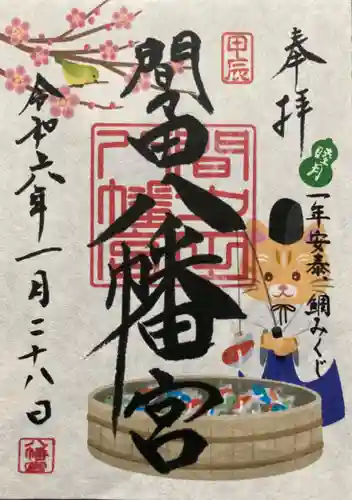 奉拝
睦月
一年安泰 鯛みくじ
甲辰
間々田八幡宮
令和六年一月二十八日